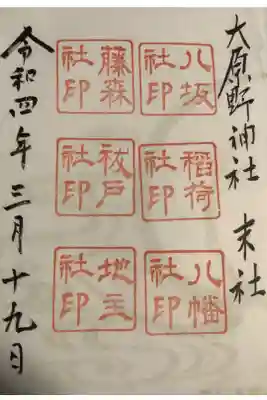 大原野神社 末社
八坂社印
稲荷社印
八幡社印
藤森社印
祓戸社印
地主社印
令和四年三月十九日